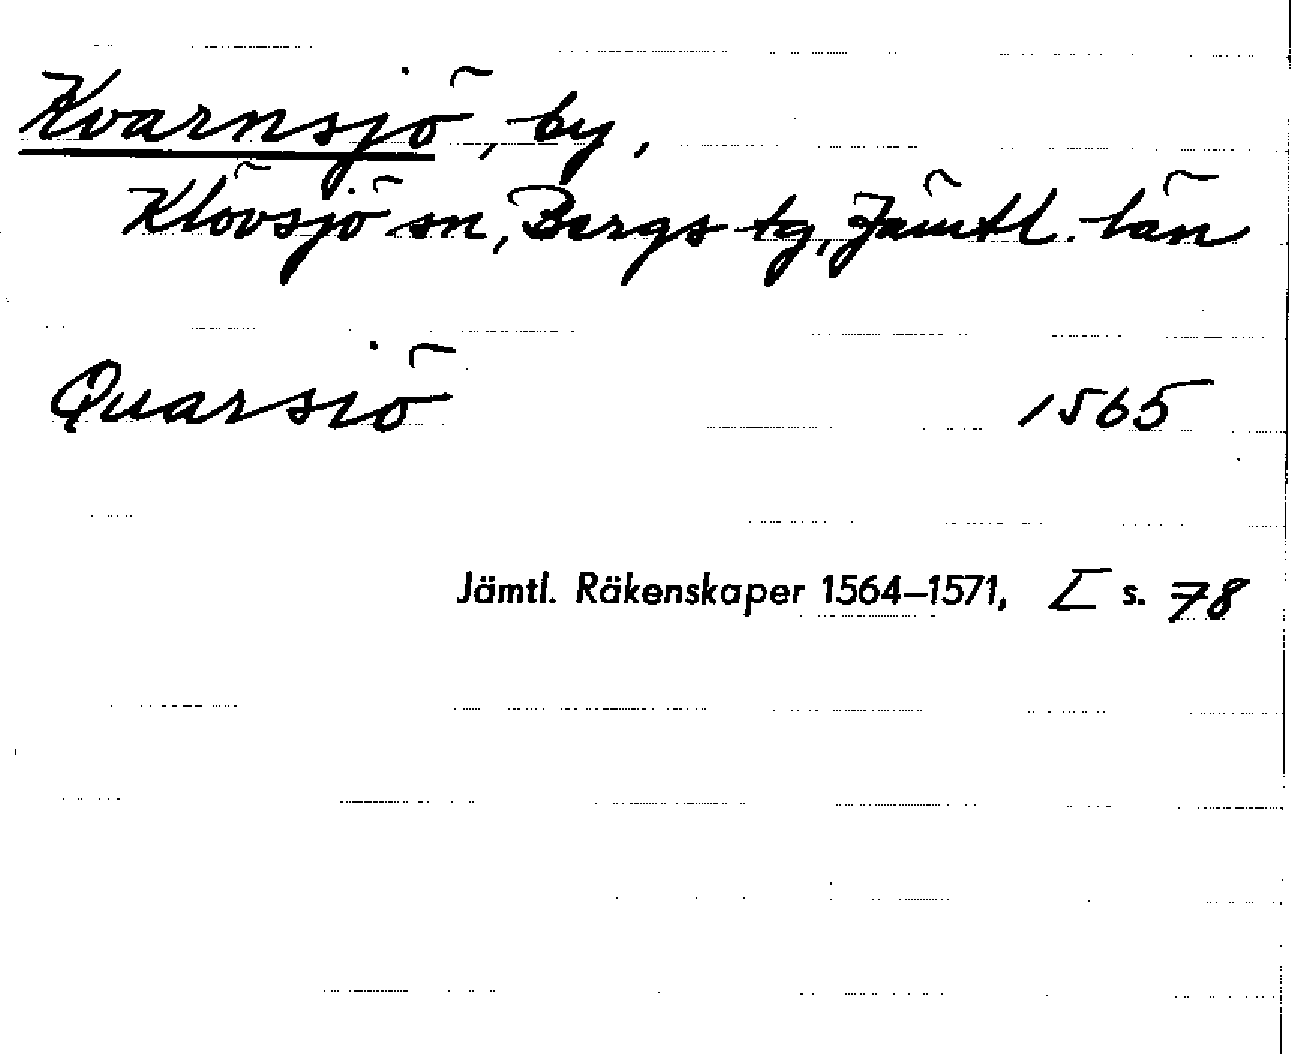 Kvarnsjö, by,
Klövsjö sn, Bergs tg, Jämtl. län
Quarsiö 1565
Jämtl. Räkenskaper 1564–1571, I s. 78